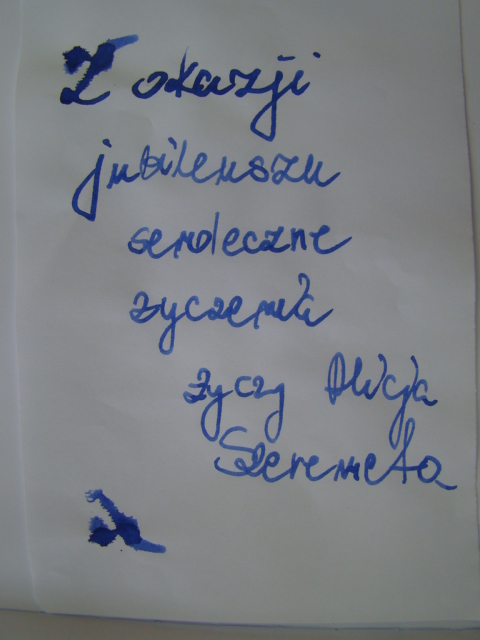 Z okazji
jubileuszu
serdeczne
życzenia
życzy Alicja
Szeremeta